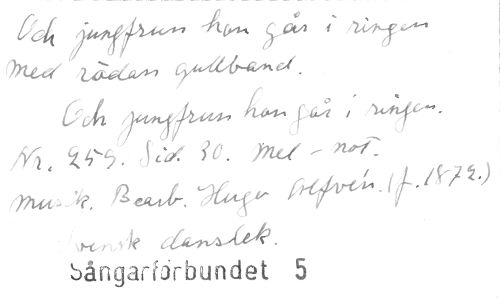 Och jungfrun hon går i ringen
med rödan gullband.
Och jungfrun hon går i ringen.
Nr. 259. Sid. 30. Mel - not.
musik. Bearb. Hugo Alfvén. (f. 1872.)
Svensk danslek.
Sångarförbundet 5